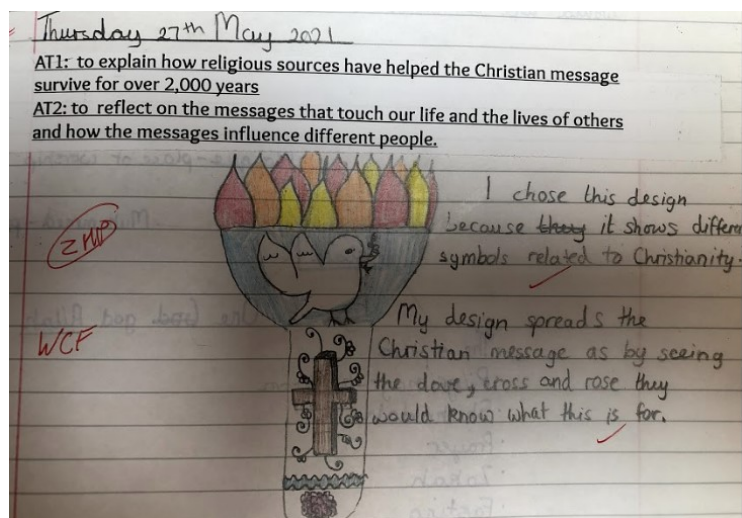 Thursday 27th May 2021
AT1: to explain how religious sources have helped the Christian message
survive for over 2,000 years
AT2: to reflect on the messages that touch our life and the lives of others
and how the messages influence different people.
I chose this design
because they it shows differen
symbols related to Christianity.
2HP
WCF
My design spreads the
Christian message as by seeing
the dove, cross and rose they
would know what this is for.